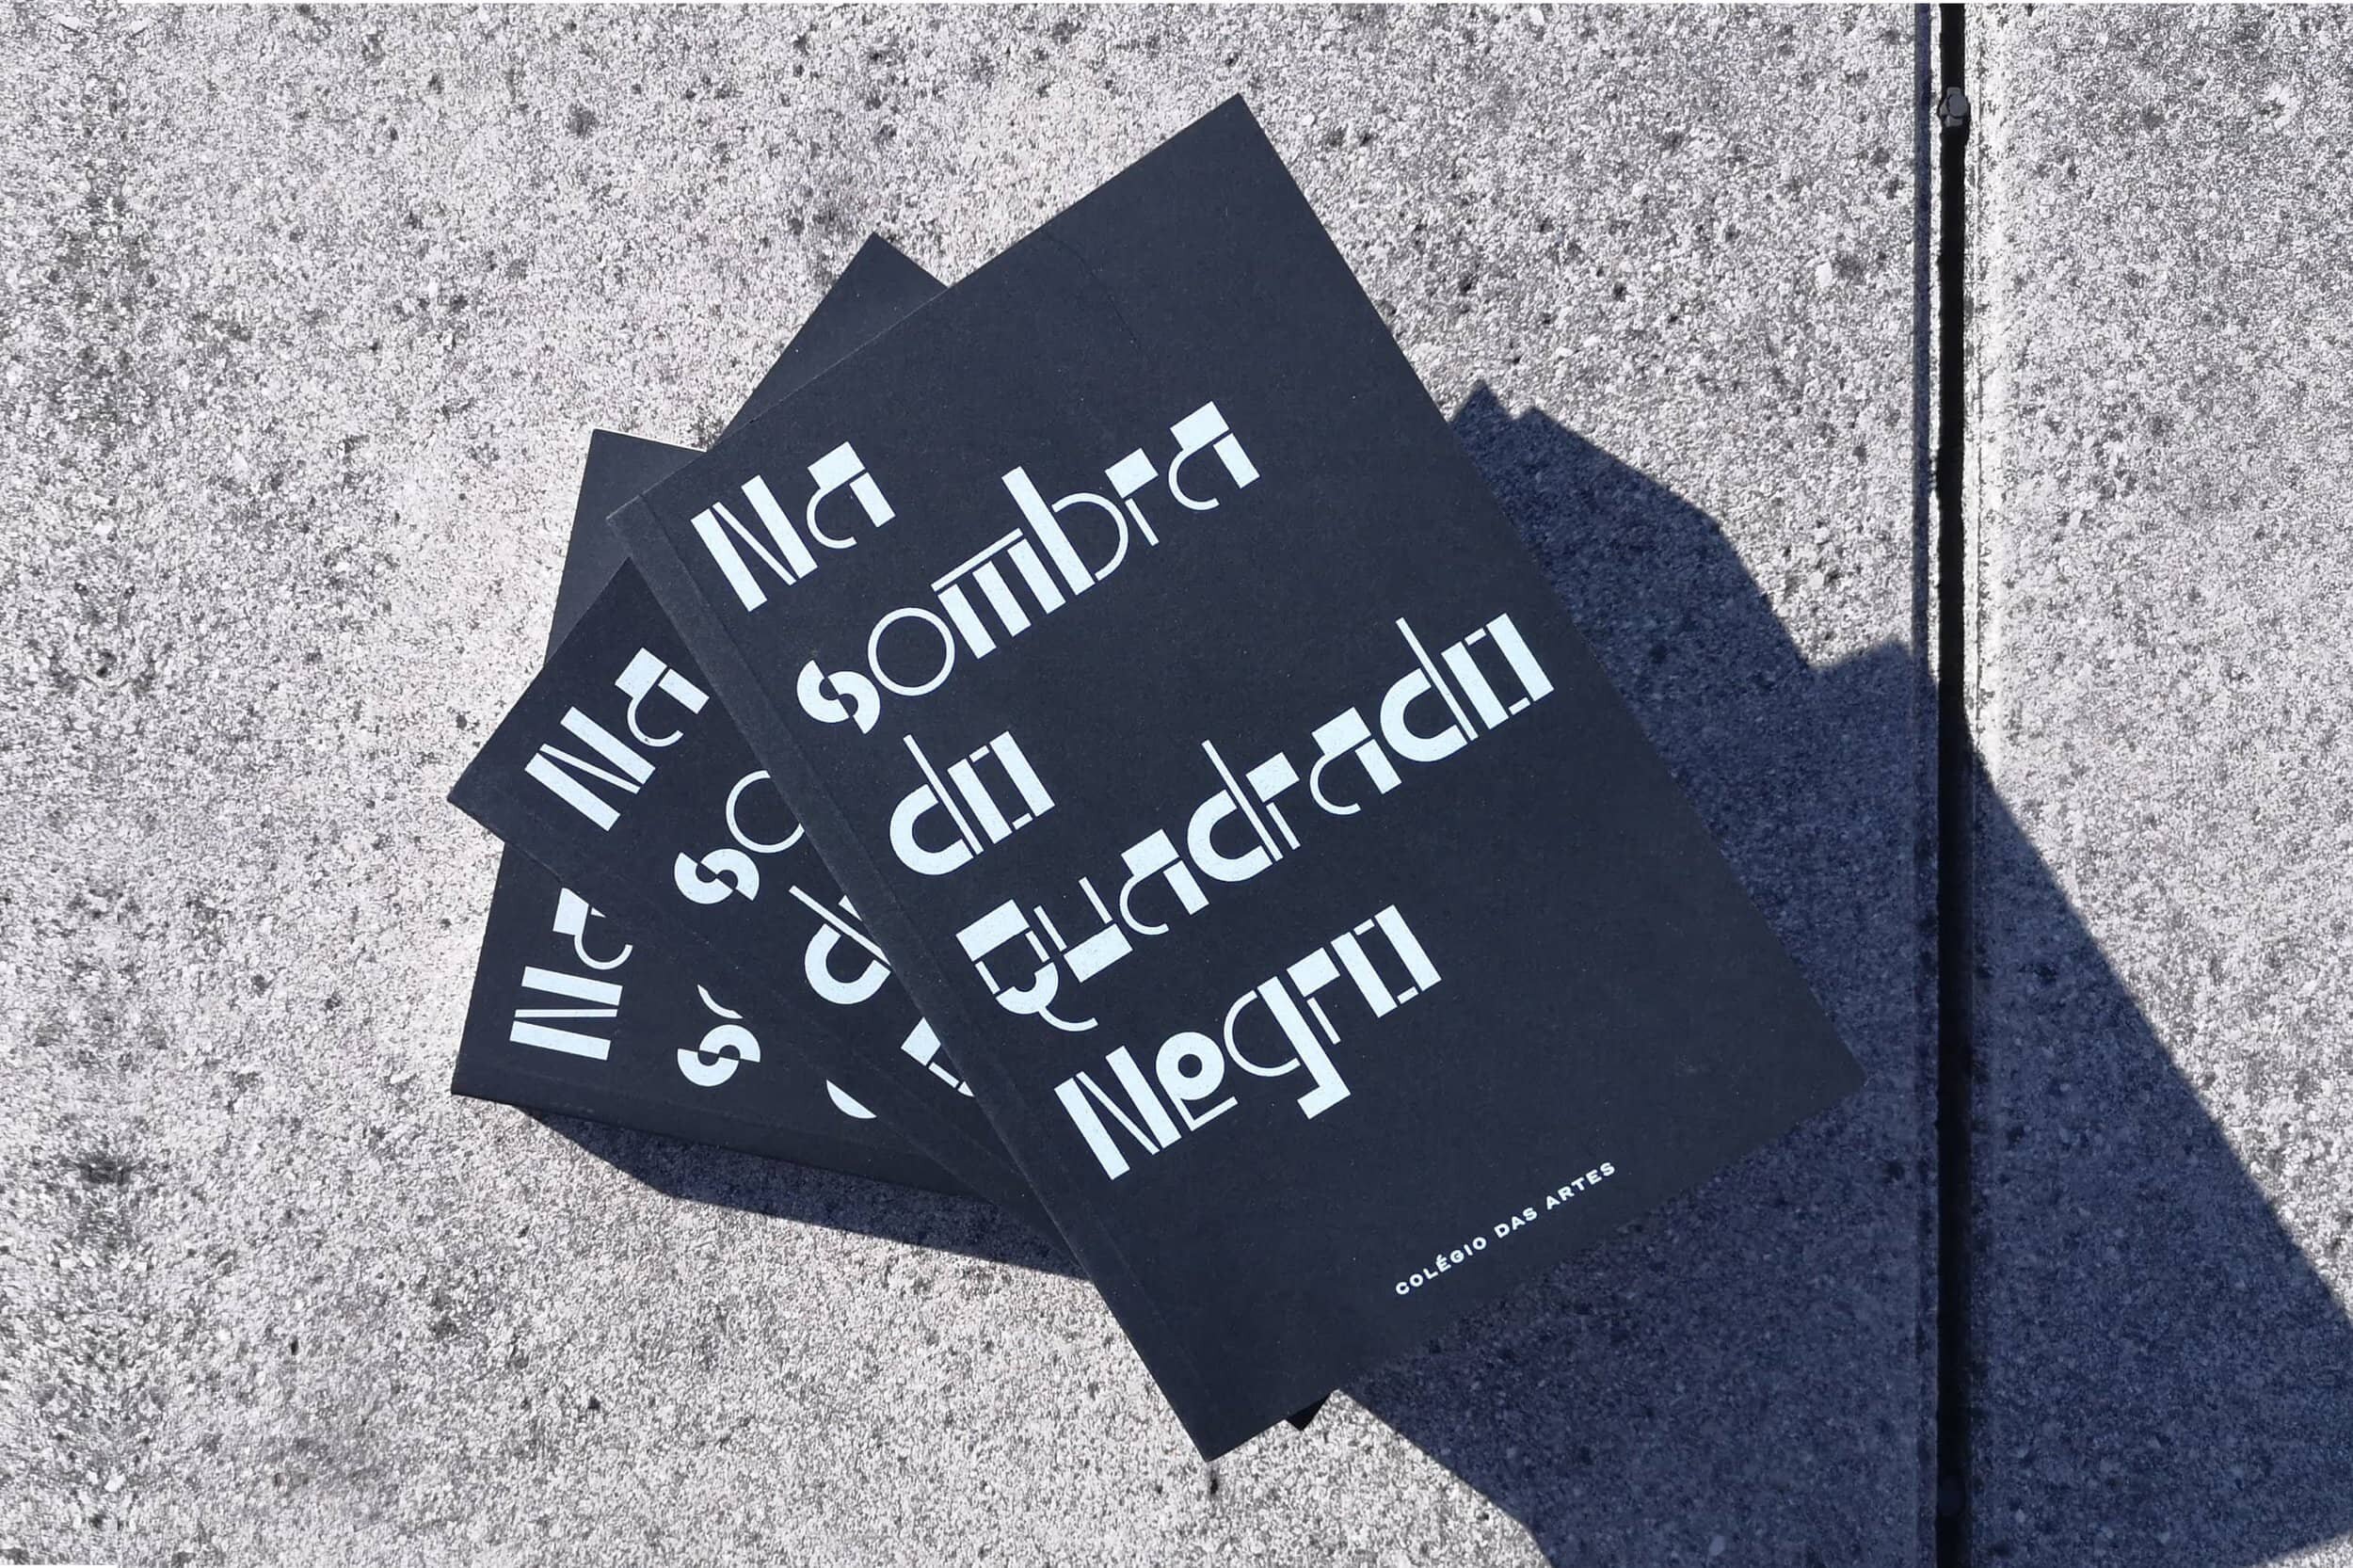 Na
sombra
do
Quadrado
Negro
COLÉGIO DAS ARTES
Na
so
d
Na
s